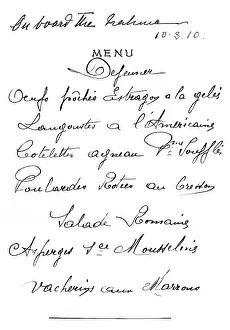 On board the Mahroussa
10.3.10.
MENU
Dejeuner
Oeufs pochés Estragon a la gelée
Langoustes a l'Americaine
Cotelettes agneau Pmes Soufflés
Poulardes Roties au Cresson
Salade Romaine
Asperges Sce Mousseline
Vacherins aux Marrons